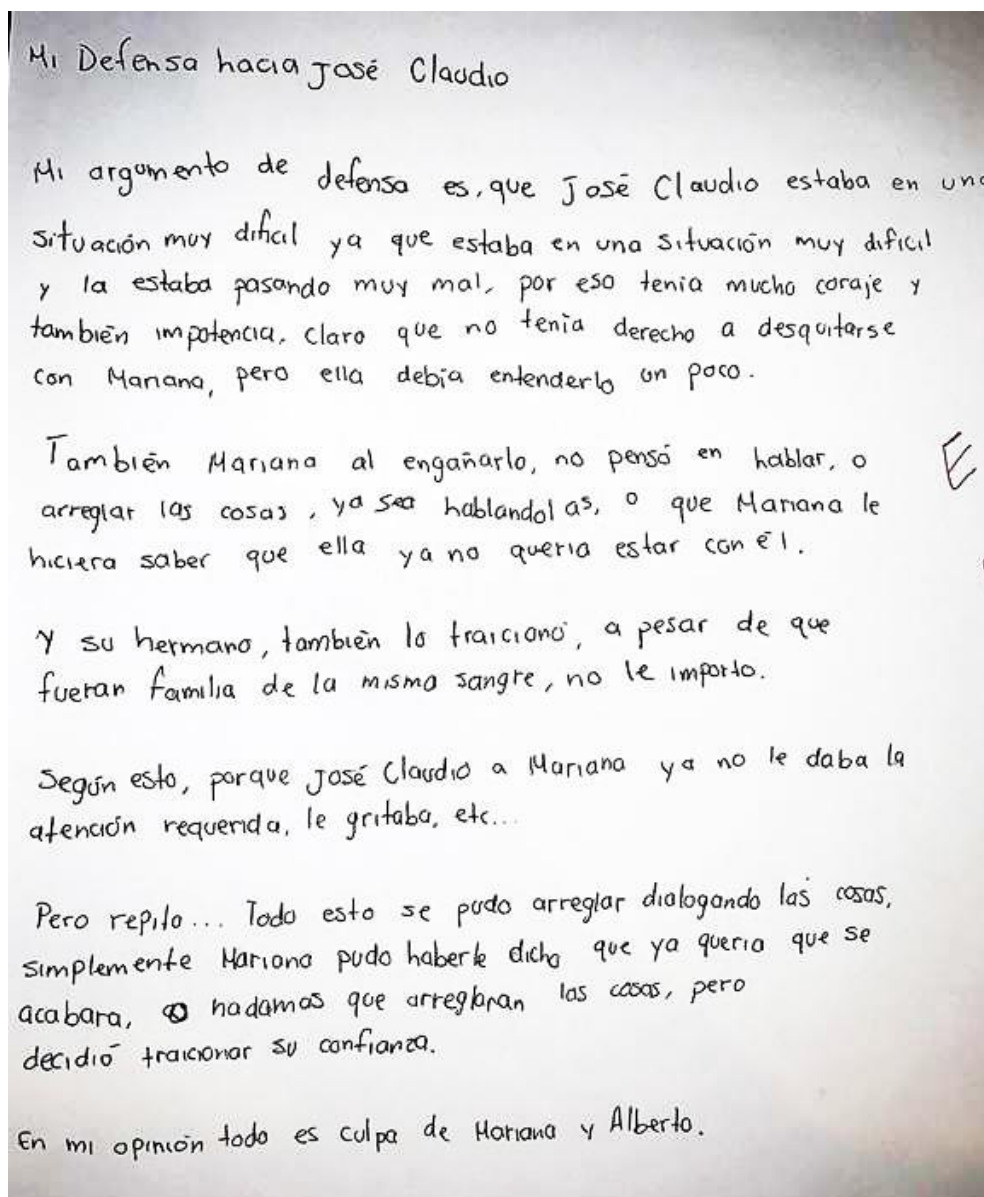 Mi Defensa hacia José Claudio
Mi argumento de defensa es, que José Claudio estaba en una
situación muy dificil ya que estaba en una situación muy dificil
y la estaba pasando muy mal, por eso tenia mucho coraje y
también impotencia, claro que no tenia derecho a desquitarse
con Mariana, pero ella debia entenderlo un poco.
También Mariana al engañarlo, no pensó en hablar, o
arreglar las cosas, ya sea hablandolas, o que Mariana le
hiciera saber que ella ya no queria estar con él.
Y su hermano, también lo traicionó, a pesar de que
fueran familia de la misma sangre, no le importo.
Según esto, porque José Claudio a Mariana ya no le daba la
atención requerida, le gritaba, etc...
Pero repito... Todo esto se pudo arreglar dialogando las cosas,
simplemente Mariana pudo haberle dicho que ya queria que se
acabara, o nadamas que arreglaran las cosas, pero
decidió traicionar su confianza.
En mi opinión todo es culpa de Mariana y Alberto.